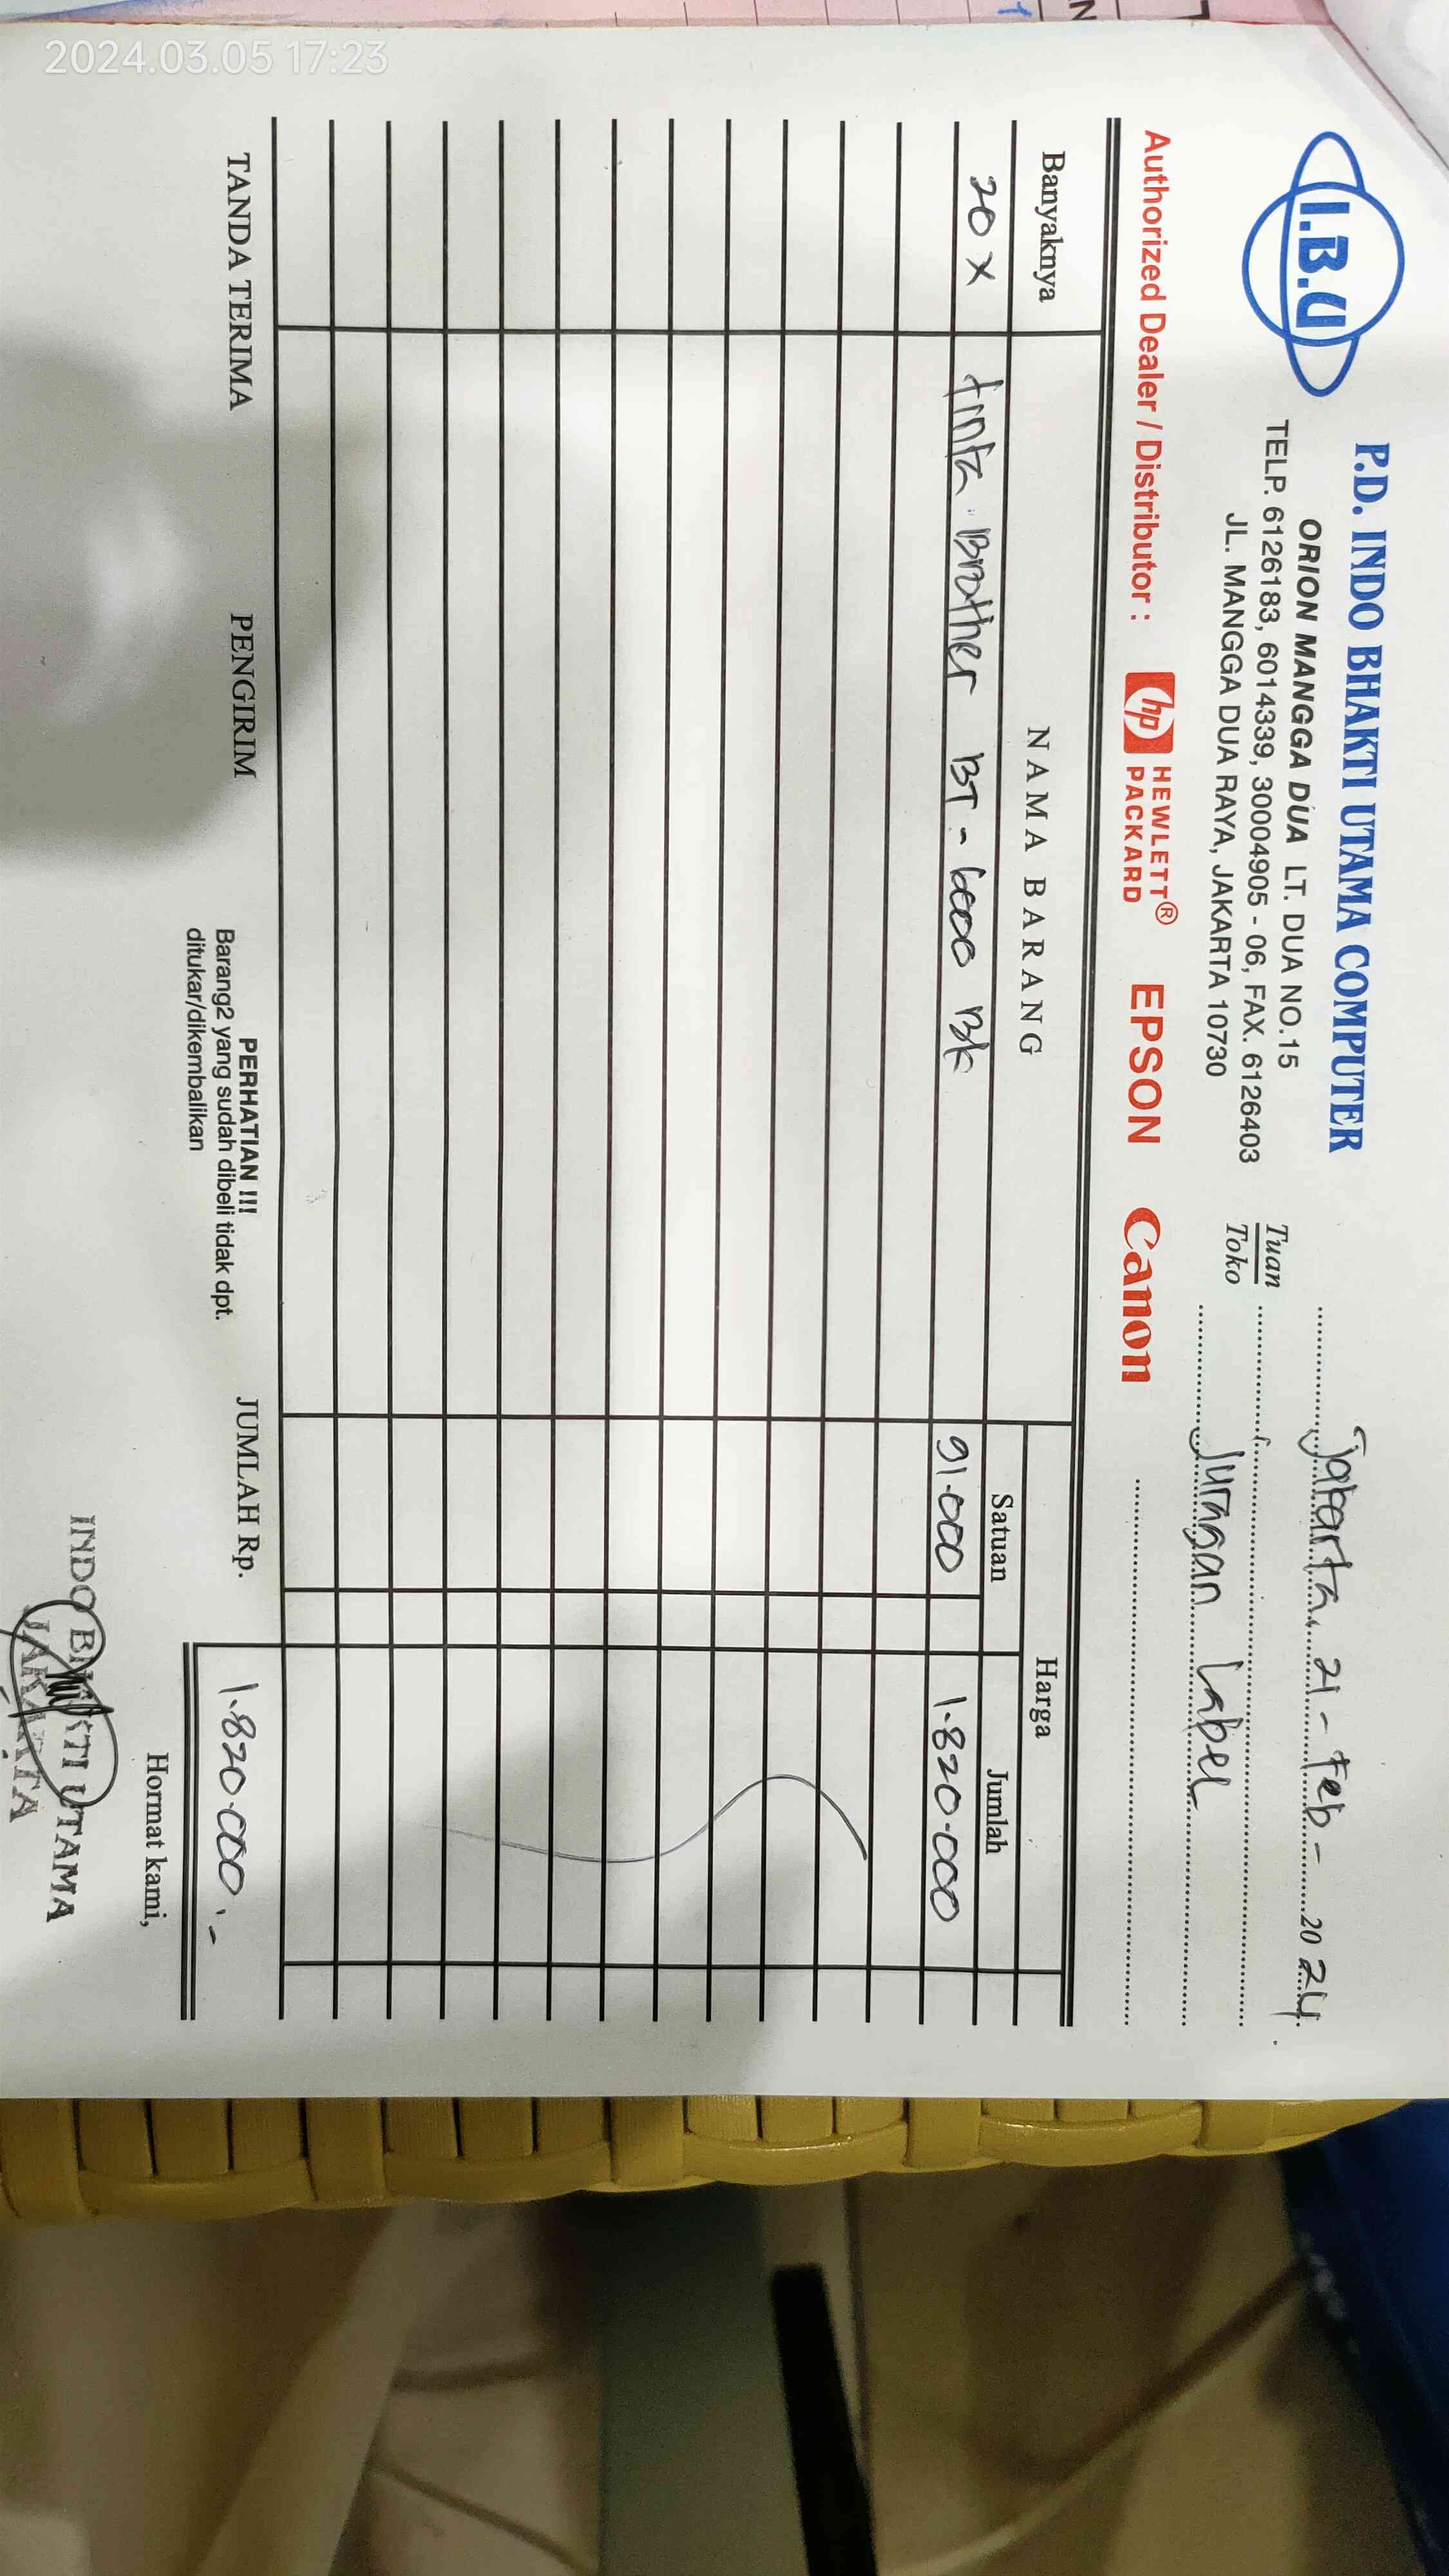 2024.03.05 17:23
I.B.U
P.D. INDO BHAKTI UTAMA COMPUTER
ORION MANGGA DUA LT. DUA NO.15
TELP. 6126183, 6014339, 30004905 - 06, FAX. 6126403
JL. MANGGA DUA RAYA, JAKARTA 10730
Jakarta, 21 - Feb - 2024
Tuan
Toko
Juragan Label
Authorized Dealer / Distributor : hp HEWLETT® PACKARD EPSON Canon
Banyaknya NAMA BARANG Harga
Satuan Jumlah
20 x tinta Brother BT - 6000 Bk 91.000 1.820.000
TANDA TERIMA PENGIRIM JUMLAH Rp. 1.820.000.-
PERHATIAN !!!
Barang2 yang sudah dibeli tidak dpt.
ditukar/dikembalikan
Hormat kami,
INDO BHAKTI UTAMA
JAKARTA